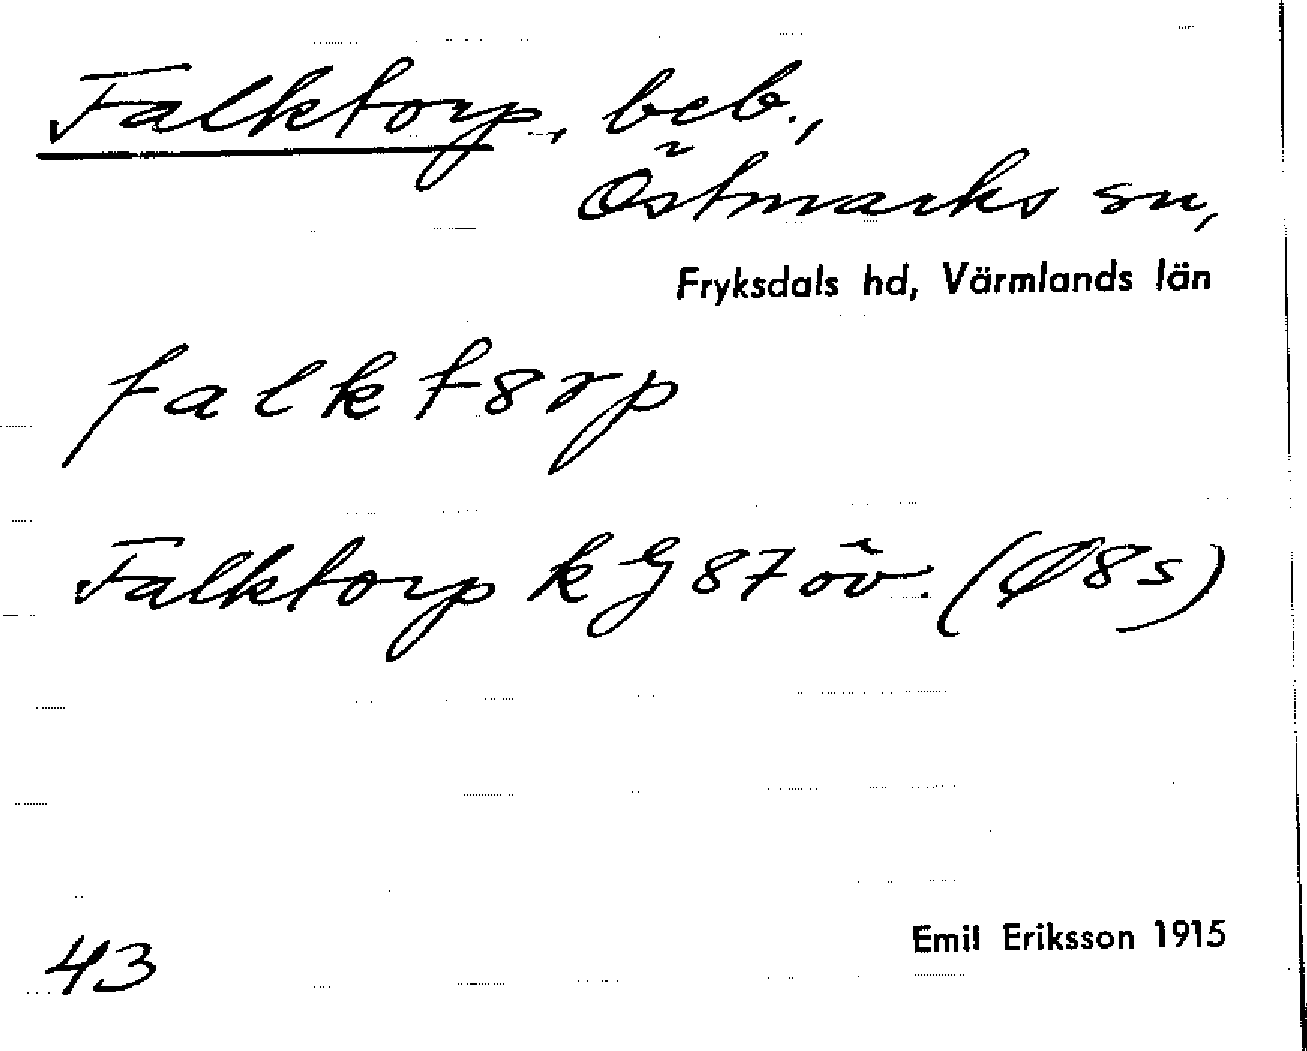 Falktorp, beb.,
Östmarks sn,
Fryksdals hd, Värmlands län
falkt8rp
Falktorp kG 87 öv. (Ø8s)
43
Emil Eriksson 1915